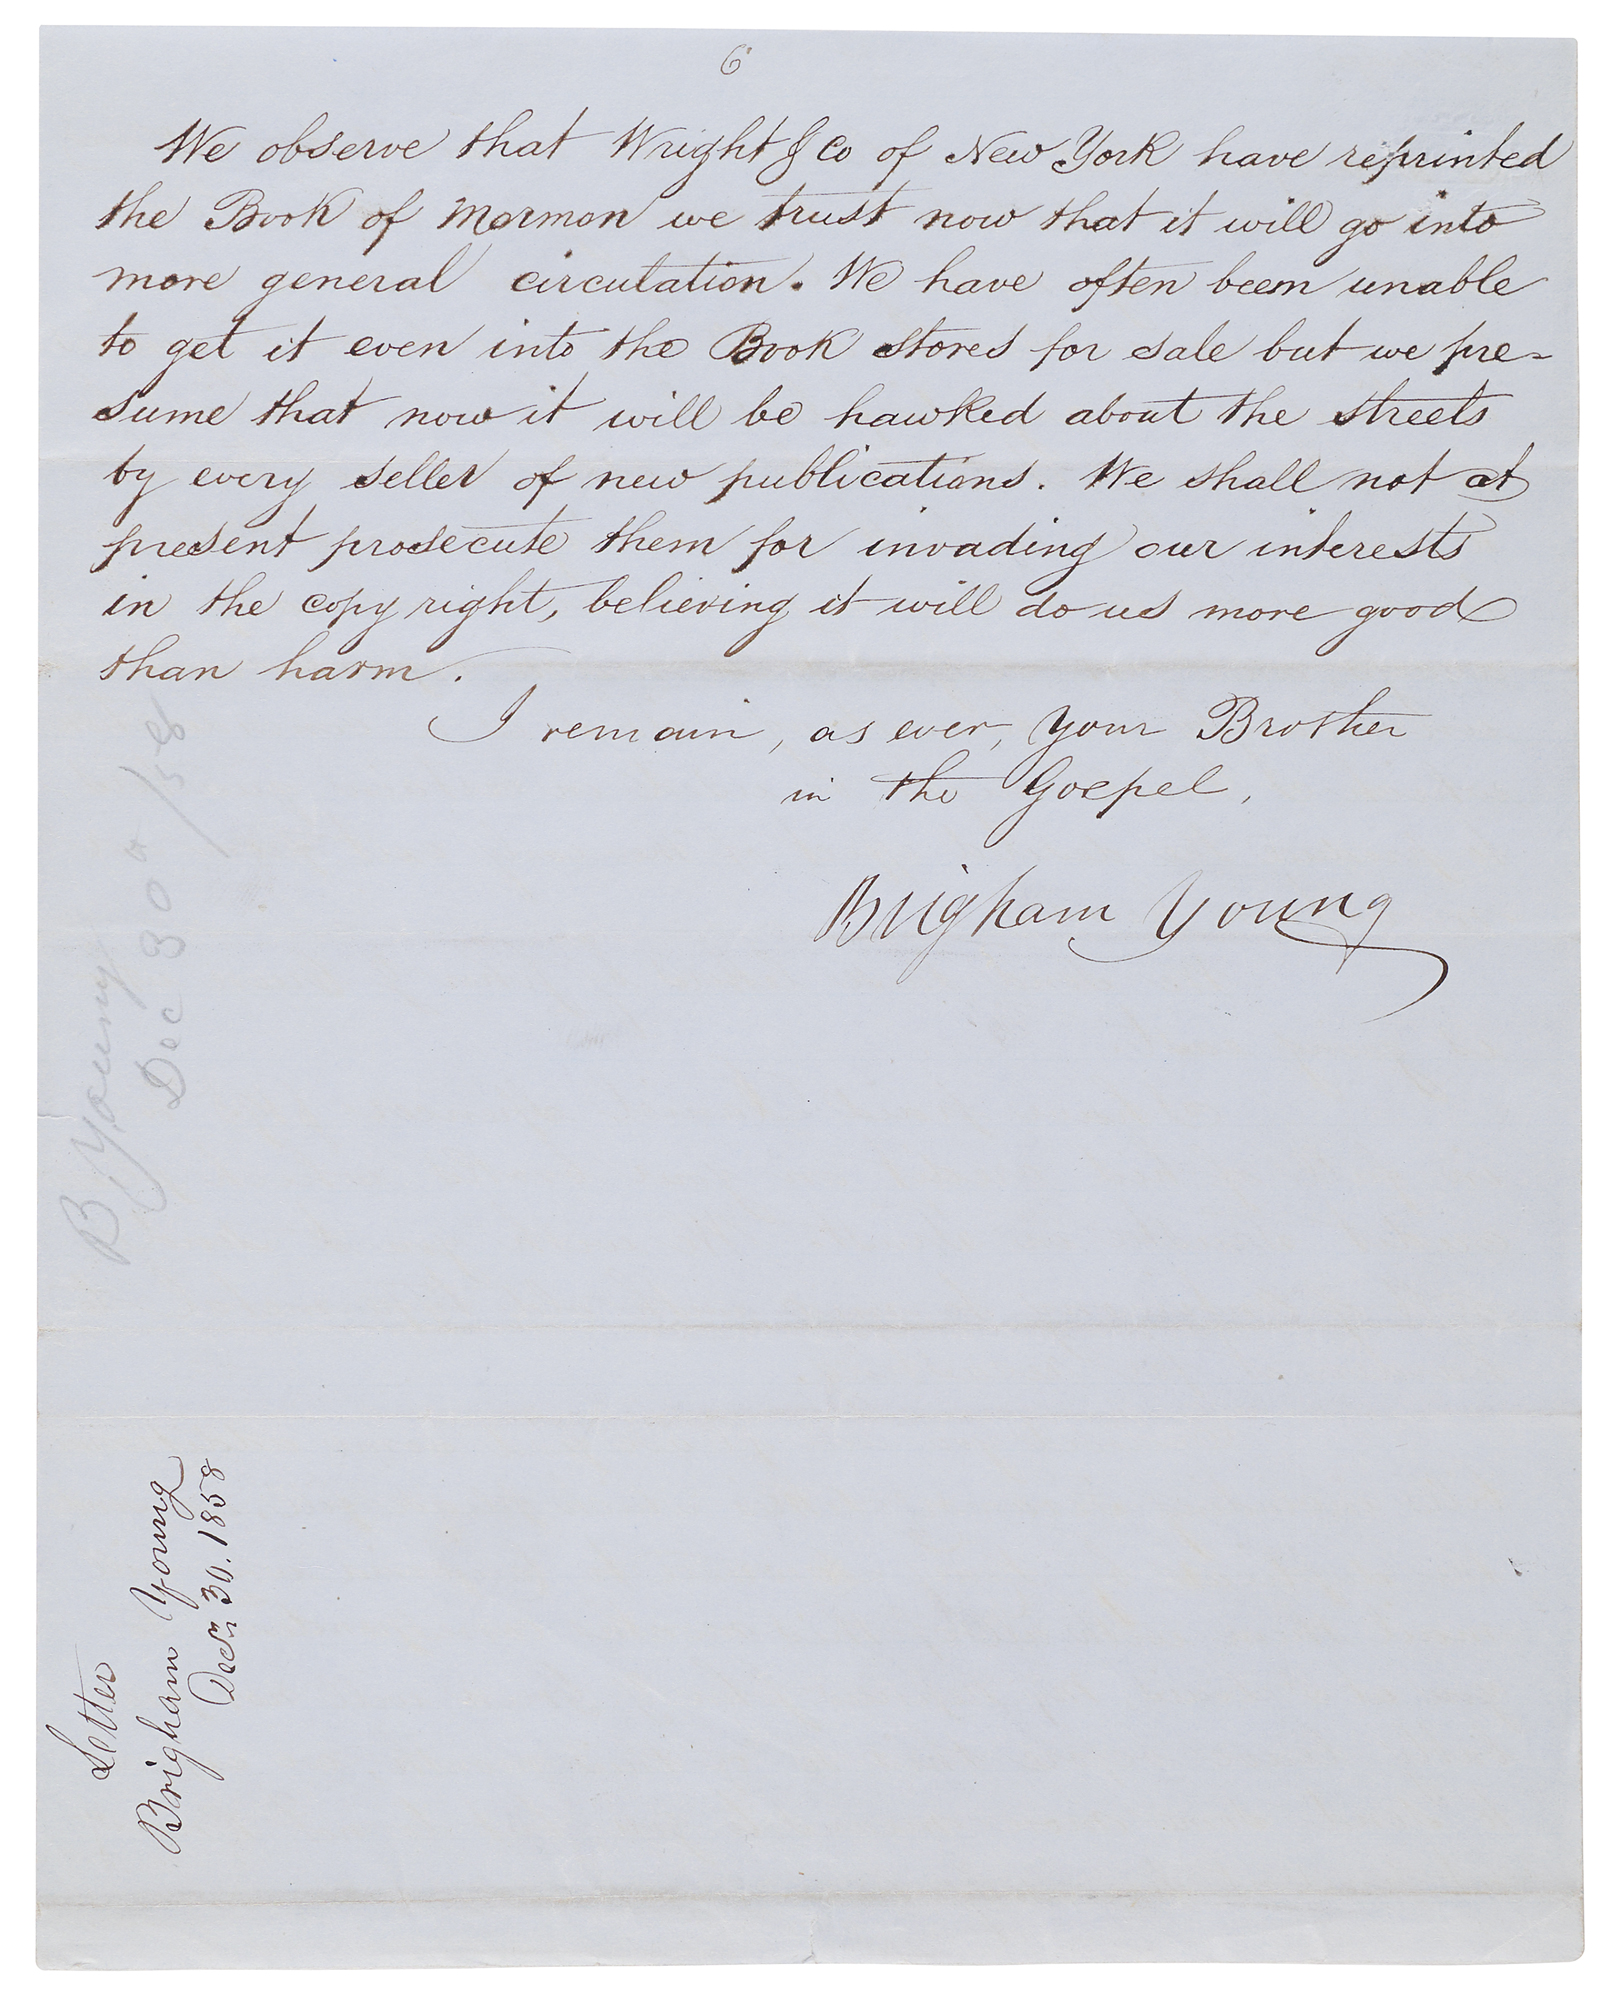 6
We observe that Wright & Co of New York have reprinted
the Book of Mormon we trust now that it will go into
more general circulation. We have often been unable
to get it even into the Book stores for sale but we pre-
sume that now it will be hawked about the streets
by every seller of new publications. We shall not at
present prosecute them for invading our interests
in the copy right, believing it will do us more good
than harm.
I remain, as ever, your Brother
in the Gospel,
Brigham Young
B Young
Dec 30th/58
Letter
Brigham Young
Decr. 30. 1858